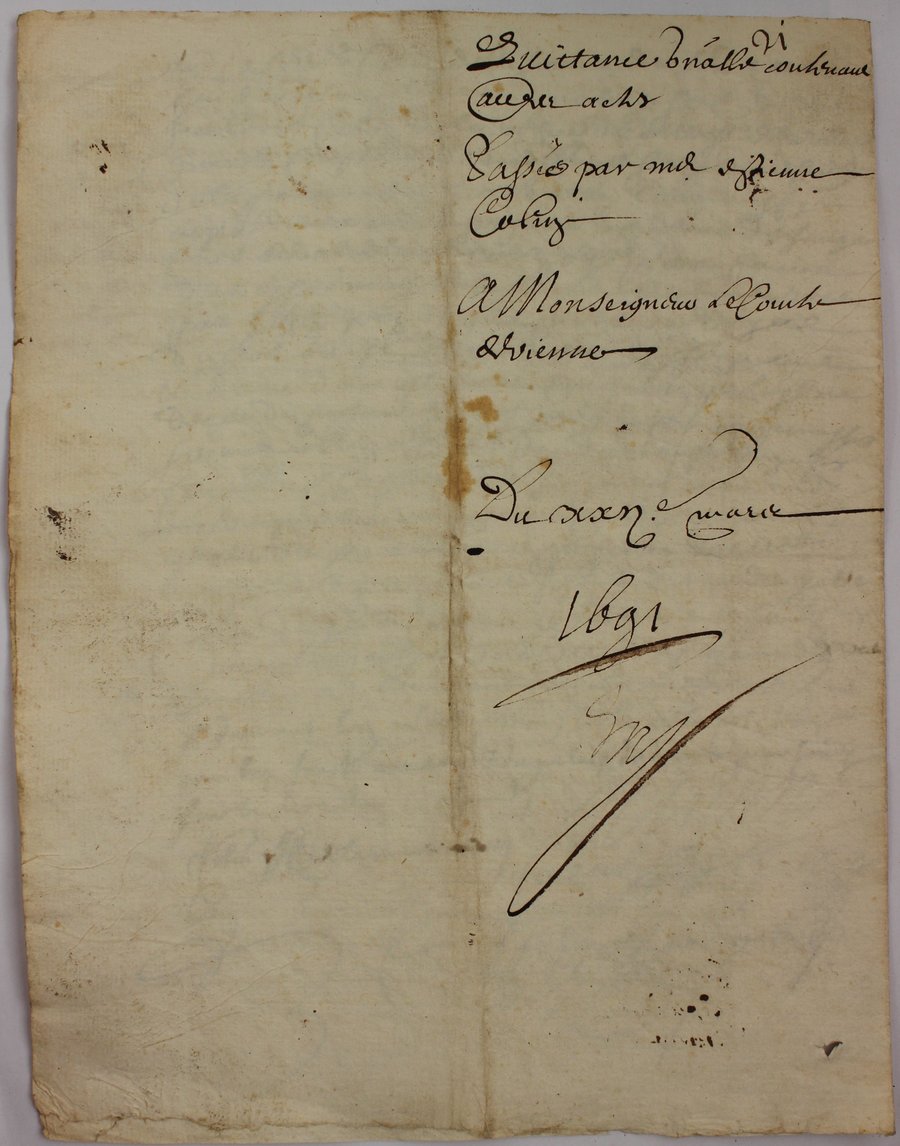 Quittance gñalle contenant
aultres actes
Passée par mre estienne
Colin
A Monseigneur Le Comte
de vienne
Du xxije mars
1691